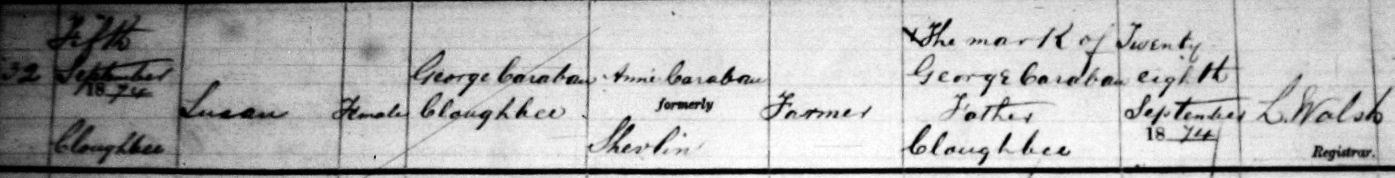 32
Fifth
September
18 74
Cloughbee
Susan
Female
George Caraban
Cloughbee
Annie Caraban
formerly
Shevlin
Farmer
X The mark of
George Caraban
Father
Cloughbee
Twenty
eighth
September
18 74
L. Walsh
Registrar.